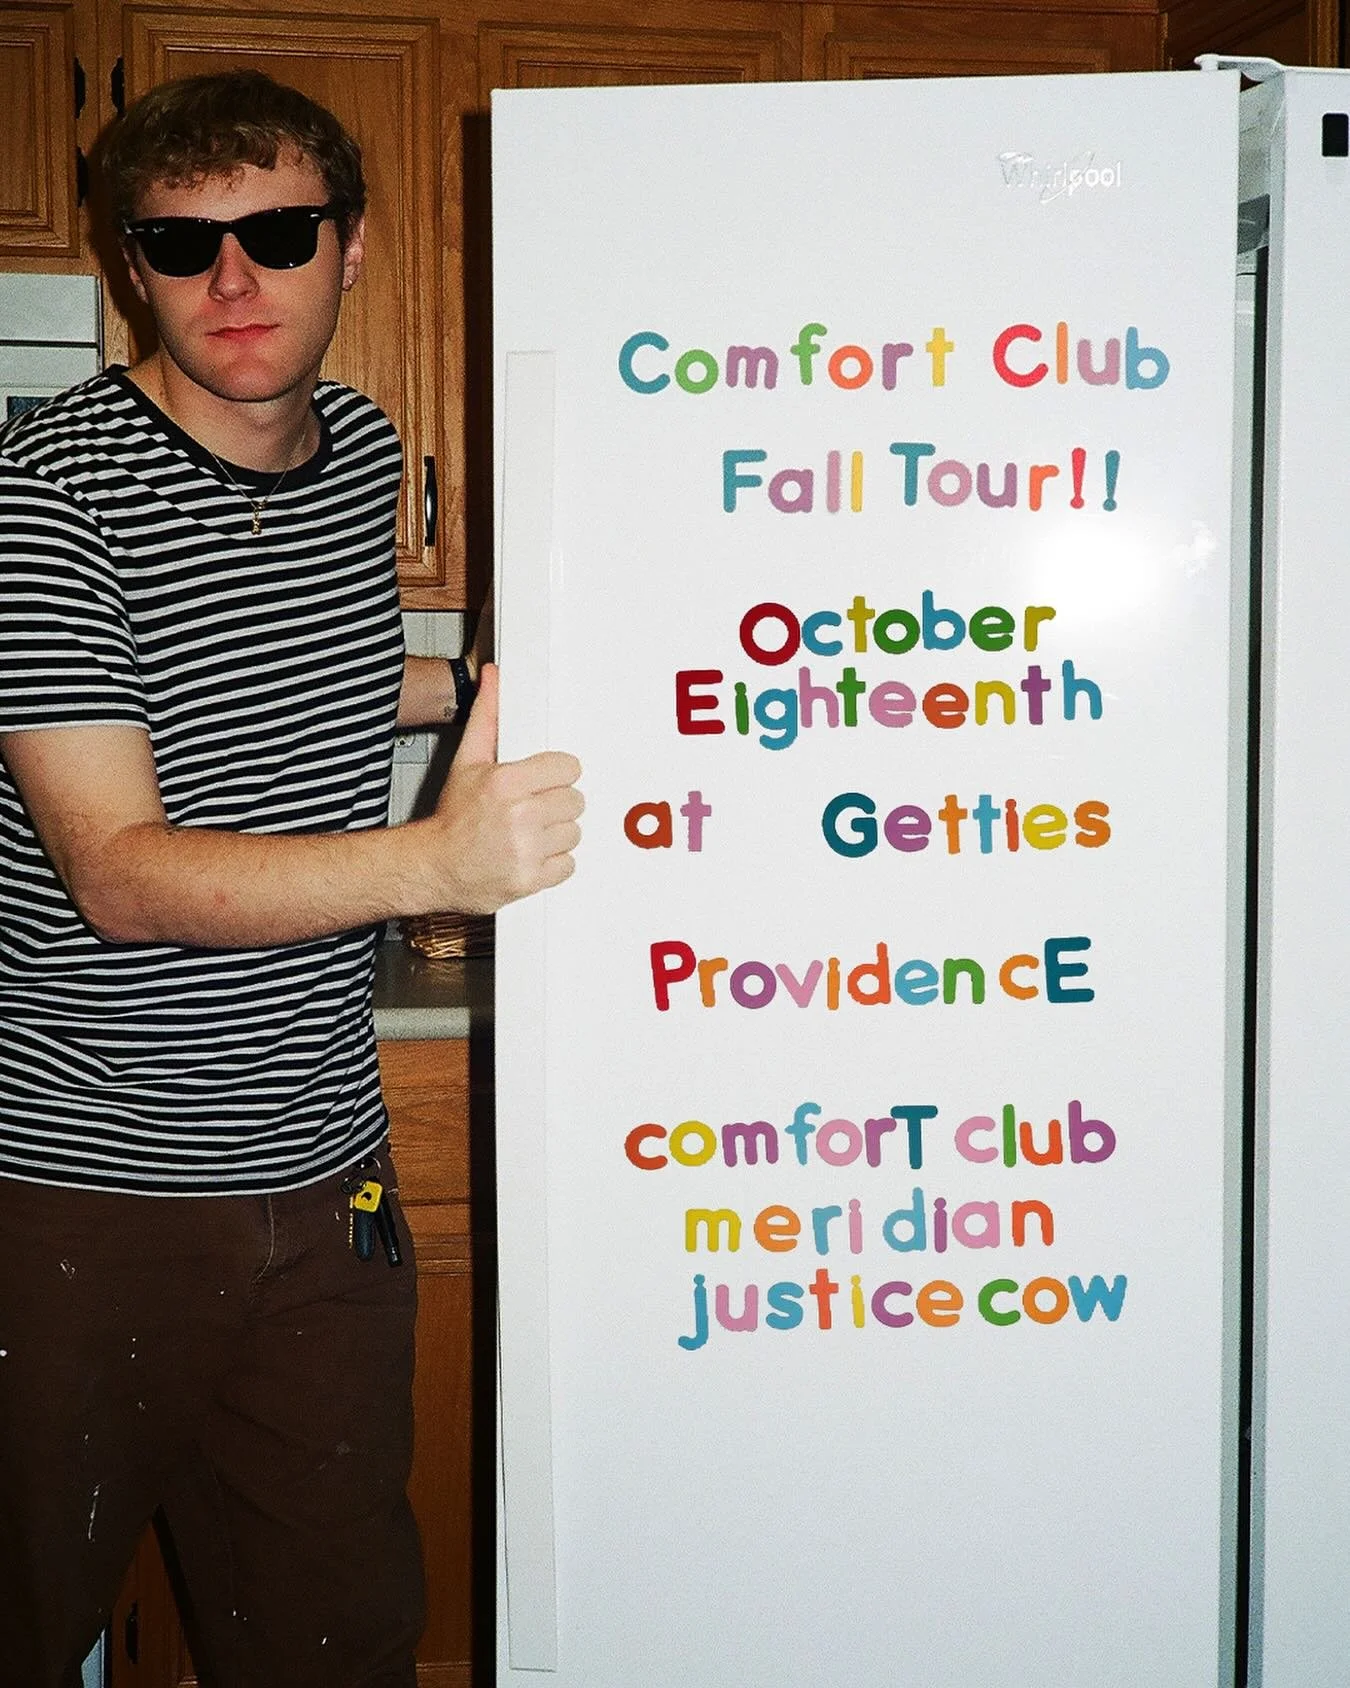 Whirlpool
Comfort Club
Fall Tour!!
October
Eighteenth
at Getties
ProvidencE
comforT club
meridian
justice cow